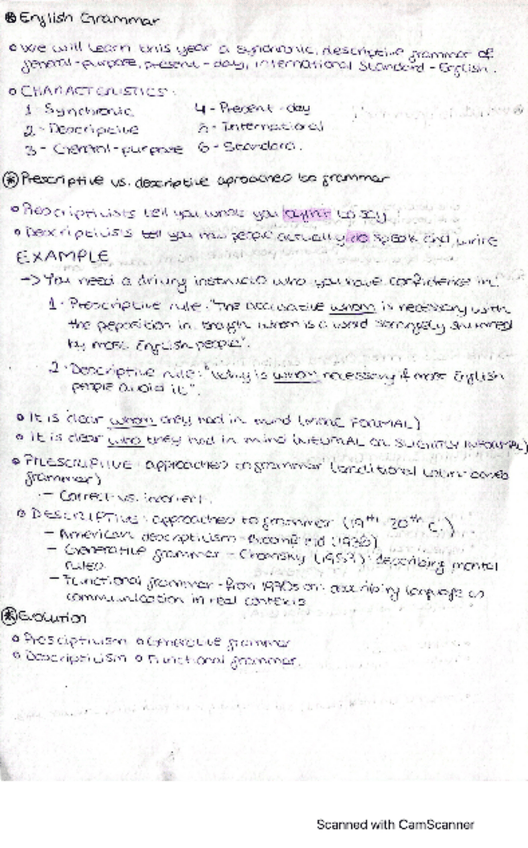 ⊛ English Grammar
o We will learn this year a synchronic, descriptive grammar of
general-purpose, present-day, international Standard-English.
o CHARACTERISTICS:
1- Synchronic 4- Present-day
2- Descriptive 5- International
3- General-purpose 6- Standard.
⊛ Prescriptive vs. descriptive aproached to grammar
o Prescriptivists tell you what you to say
o Descriptivists tell you how people actually do speak and write
EXAMPLE
-> You need a driving instructor who you have confidence in.
1. Prescriptive rule: "The accusative whom is necessary with
the peposition in, though whom is a word strangely shunned
by most English people".
2. Descriptive rule: "Why is whom necessary if most English
people avoid it".
o It is clear whom they had in mind (MORE FORMAL)
o It is clear who they had in mind (INFORMAL OR SLIGHTLY INFORMAL)
o PRESCRIPTIVE: approaches to grammar (traditional Latin-based
grammar)
- Correct vs. incorrect.
o DESCRIPTIVE: approaches to grammar (19th 20th C.)
- American descriptivism - Bloomfield
- Generative grammar - Chomsky : describing mental
rules
- Functional grammar - from 1970s on: describing language as
communication in real contexts
⊛ Evolution
o Prescriptivism o Generative grammar
o Descriptivism o Functional grammar.
Scanned with CamScanner